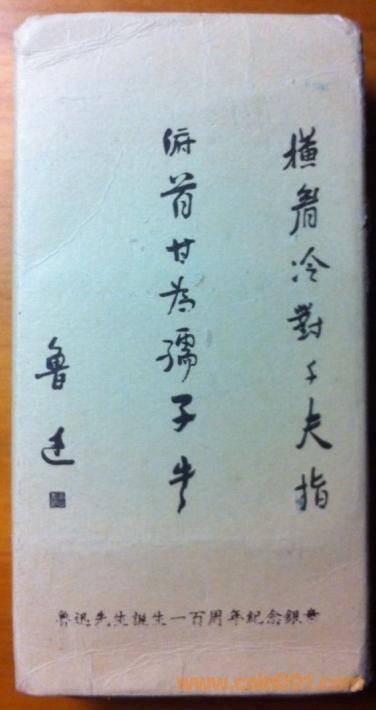 橫眉冷對千夫指
俯首甘為孺子牛
魯迅
魯迅先生誕生一百周年紀念銀章
www.coin001.com